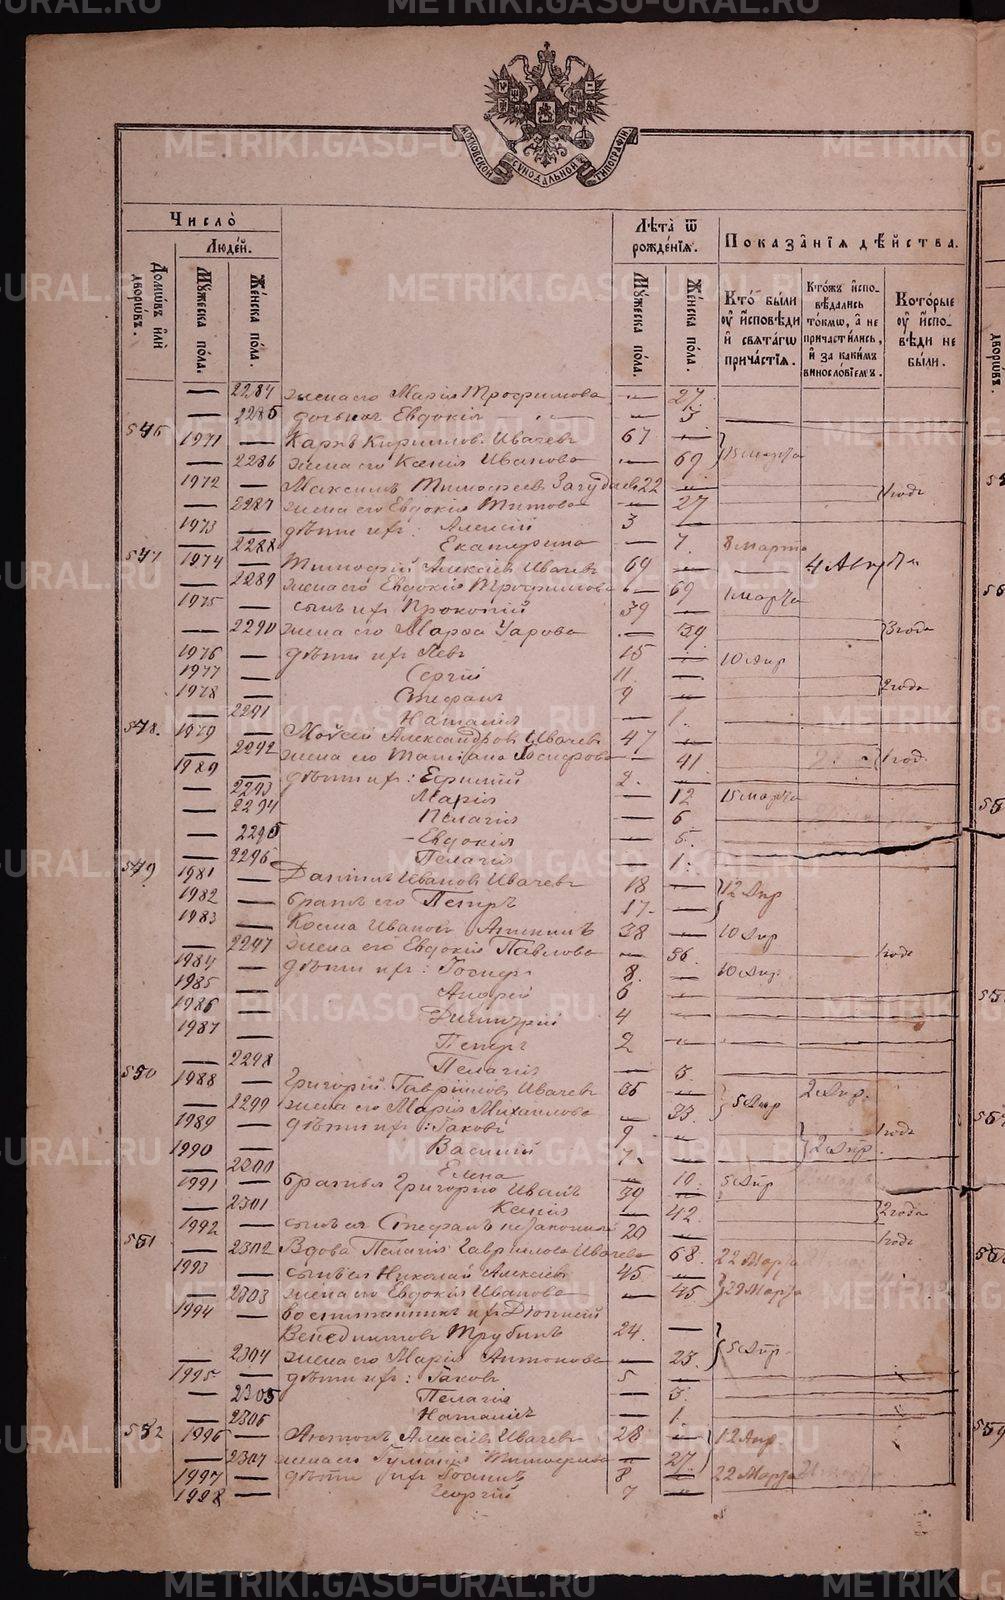 METRIKI.GASO-URAL.RU
МОСКОВСКОЙ СѴНОДАЛЬНОЙ ТИПОГРАФІИ
Число̀
Люде́й.
Домѡ́въ и҆лѝ дворѡ́въ.
Мꙋ́жеска по́ла.
Же́нска по́ла.
Лѣ́та ѿ рожде́нїѧ.
Мꙋ́жеска по́ла.
Же́нска по́ла.
Показа́нїѧ дѣ́йства.
Кто̀ бы́ли ᲂу҆ и҆сповѣ́ди и҆ свѧта́гѡ прича́стїѧ.
Кто́жъ и҆спо- вѣ́дались то́кмѡ, а҆ не причасти́лись, и҆ за каки́мъ виносло́вїемъ.
Кото́рые ᲂу҆ и҆спо- вѣ́ди не бы́ли.
— 2284 жена его Марія Трофимова — 27
— 2285 дочь их Евдокія — 3
546 1971 — Карпъ Кирилловъ Ивачевъ 67 —
— 2286 жена его Ксенія Иванова — 69 15 марта
1972 — Максимъ Тимофеевъ 22 — 1 годъ
— 2287 жена его Евдокія Титова — 27
1973 — дѣти ихъ: Алексій 3 —
— 2288 Екатерина — 7 8 марта
547 1974 — Тимофей Алексіевъ Ивачевъ 69 — 4 Августа
— 2289 жена его Евдокія Трофимова — 69 1 марта
1975 — сынъ ихъ Прокопій 39 —
— 2290 жена его Марѳа Уарова — 39 3 года
1976 — дѣти ихъ Левъ 15 — 10 Апр
1977 — Сергій 11 —
1978 — Стефанъ 9 — 2 года
— 2291 Наталія — 1.
548. 1979 — Моѵсей Александровъ Ивачевъ 47 —
— 2292 жена его Татіана Іосифова — 41 1 год.
1980 — дѣти ихъ: Ефимій 2. —
— 2293 Марія — 12 15 марта
— 2294 Пелагія — 6
— 2295 Евдокія — 5.
— 2296 Пелагія — 1.
549 1981 — Даніилъ Ивановъ Ивачевъ 18 — 12 Апр
1982 — братъ его Петръ 17. —
1983 — Косма Ивановъ 38 — 10 Апр
— 2297 жена его Евдокія Павлова — 36. 1 годъ
1984 — дѣти ихъ: Іосифъ 8. — 10 Апр.
1985 — Андрей 6 —
1986 — Димитрій 4 —
1987 — Петръ 2 —
— 2298 Пелагія — 5.
550 1988 — Григорій Гавриловъ Ивачевъ 36 — 2 Апр.
— 2299 жена его Марія Михаилова — 33. 5 Апр
1989 — дѣти ихъ: Іаковъ 9 — 1 годъ
1990 — Василій 7. — 2 Апр.
— 2300 Елена — 10. 5 Апр
1991 — братья Григорію Иванъ 39 —
— 2301 Ксенія — 42. 2 года
1992 — сынъ ея Стефанъ незаконный 20 — 1 годъ
551 — 2302 Вдова Пелагія Гаврилова Ивачева — 68. 22 Марта
1993 — сынъ ея Николай Алексіевъ 45 —
— 2303 жена его Евдокія Иванова — 45 29 Марта
1994 — воспитанникъ ихъ Діонисій
Венедиктовъ Трубинъ 24. —
— 2304 жена его Марія Антонова — 23. 5 Апр.
1995 — дѣти ихъ: Іаковъ 5 —
— 2305 Пелагія — 3.
— 2306 Наталія — 1.
552 1996 — Антонъ Алексіевъ Ивачевъ 28 — 12 Апр
— 2307 жена его Тимофеева — 27
1997 — дѣти ихъ Іоаннъ 8 — 22 Марта
1998 — Георгій 7 —